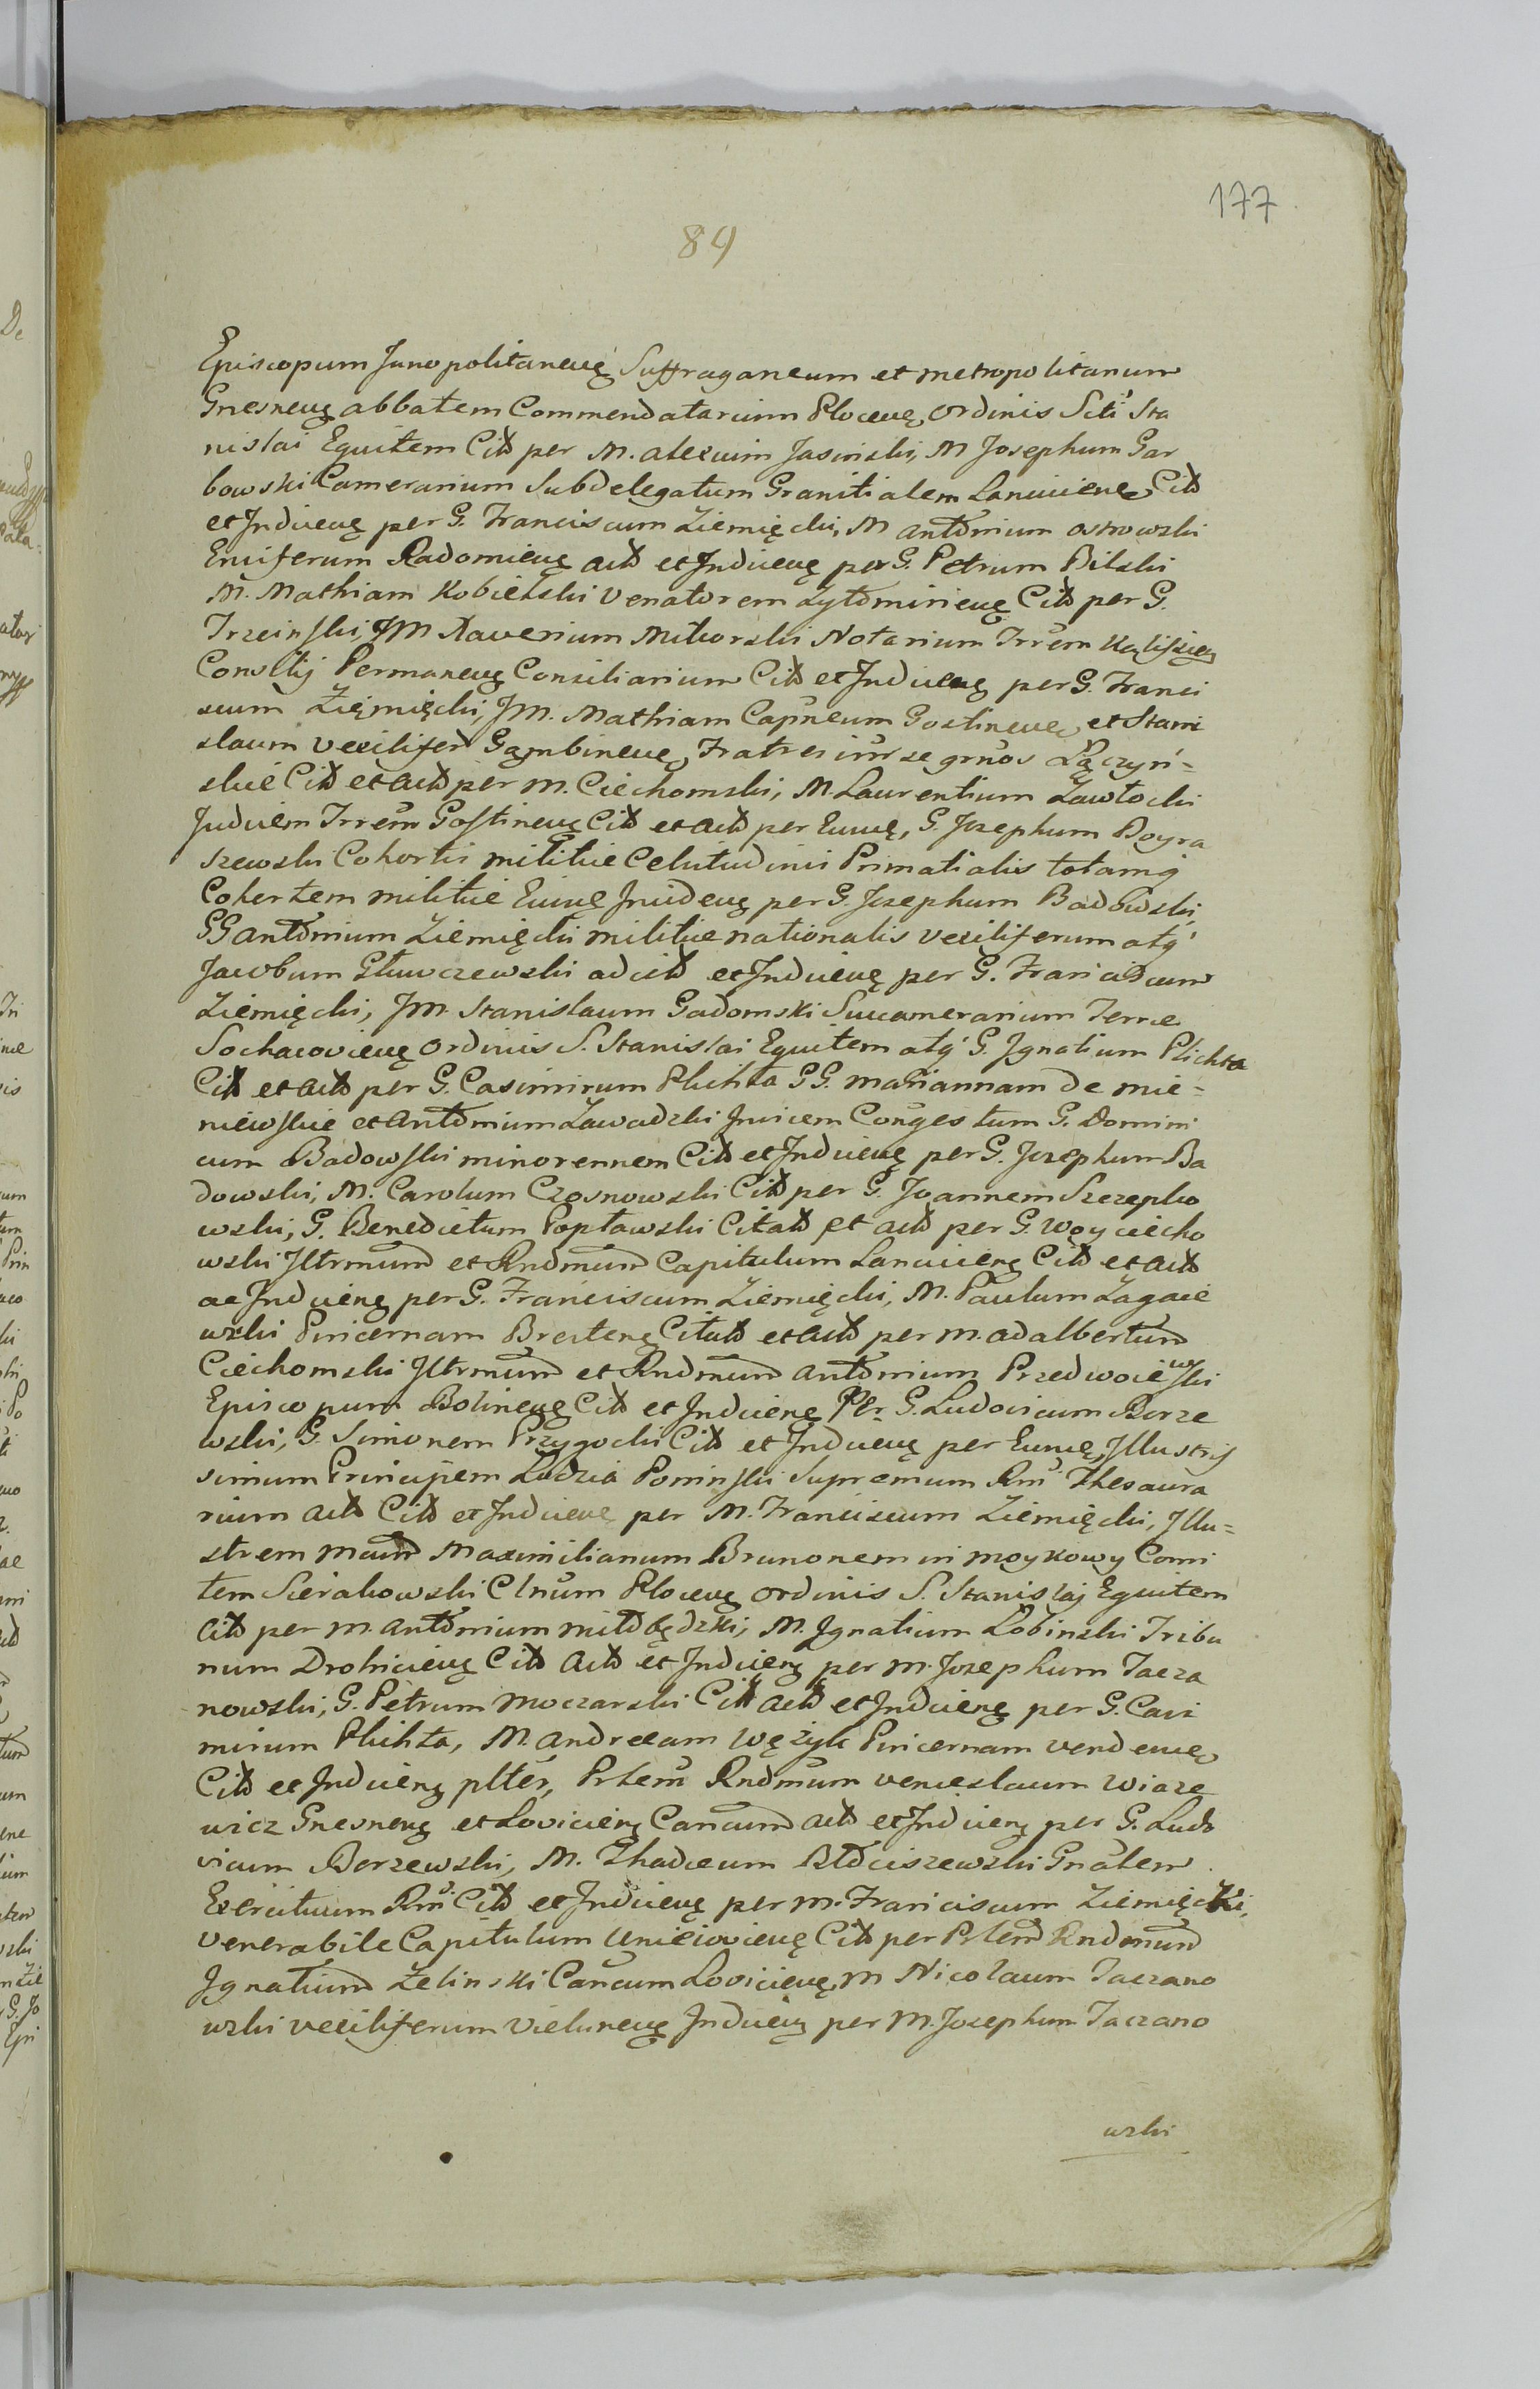 177
84
Episcopum Junopolitaneuę Suffraganeum et metropolitanum
Gnesneuę abbatem Commendatarium Ploceuę ordinis Scti Sta
nislai Equitem Citt per M. alexium Jasinski, M Josephum Gar
bowski Camerarium Subdelegatum Granitialem Lancicieuę Citt
et Inducieuę per G. Franciscum Ziemięcki, M antonium ostrowski
Ensiferum Radomieuę actt et Inducieuę per G. Petrum Bilski
M. Mathiam Kobielski Venatorem Zytomirieuę Citt per G.
Trzcinski, JM Xaverium Mikorski Notarium Trrem Kaliszieuę
Consilij Permaneuę Consiliarium Citt et Inducieuę per G. Franci
scum Ziemięcki, JM. Mathiam Capneum Gostineuę et Stani
slaum vexilifer Gambineuę, Fratres inr se grnos Lączyń=
skie Citt et actt per M. Ciechomski, M. Laurentium Zawłocki
Judicem Trrem Gostineuę Citt et actt per Euneę, G. Josephum Boyra
szewski Cohortis militiae Celsitudinis Primatialis totamq
Cohortem militiae Euneę Incideuę per G. Josephum Badowski,
GG antonium Ziemięcki militiae nationalis vexiliferum atq
Jacobum Głuwczewski adcitt et Inducieuę per G. Franciscum
Ziemięcki, JM. Stanislaum Gadomski Succamerarium Terrae
Sochacovieuę ordinis S. Stanislai Equitem atq G. Ignatium Plichta
Citt et actt per G. Casimirum Plichta GG. mariannam de mie=
niewskie et antonium Zawadzki Invicem Conges tum G. Domini
cum Badowski minorennem Citt et Inducieuę per G. Josephum Ba
dowski, M. Carolum Czosnowski Citt per G. Joannem Szczepko
wski, G. Benedictum Popławski Citatt et actt per G. Woyciecho
wski Illrmum et Rndmum Capitulum Lancicieuę Citt et actt
ac Inducieuę per G. Franciscum Ziemięcki, M. Paulum Zagaie
wski Pincernam Bresteuę Citatt et actt per M. adalbertum
Ciechomski Illrmum et Rndmum antonium Przedwoiewski
Episcopum Bolineuę Citt et Inducieuę Per G. Ludovicum Borze
wski, G. Simonem Przygocki Citt et Inducieuę per Euneę, Illustris
simum Principem Lodzia Poninski Supremum Rni Thesaura
rium actt Citt et Inducieuę per M. Franciscum Ziemięcki, Illu=
strem Mcum Maximilianum Brunonem in moykowy Comi
tem Sierakowski Clnum Ploceuę ordinis S. Stanislaj Equitem
Citt per M. antonium miłobędzki, M. Ignatium Łobinski Tribu
num Drohicieuę Citt actt et Inducieuę per M. Josephum Tacza
nowski, G. Petrum Moczarski Citt actt et Inducieuę per G. Casi
mirum Plichta, M. andream Wężyk Pincernam vendeuę
Citt et Inducieuę pltes, Prlem Rndmum venceslaum Wiaze
wicz Gnesneuę et Lovicieuę Cancum actt et Inducieuę per G. Ludo
vicum Borzewski, M. Thadaeum Błociszewski Gnalem
Exercituum Rni Citt et Inducieuę per M. Franciscum Ziemięcki,
Venerabile Capitulum Unieiovieuę Citt per Prlem Rndmum
Ignatium Zelinski Cancum Lovicieuę, M Nicolaum Taczano
wski vexiliferum Vieluneuę Inducieuę per M. Josephum Taczano
wski